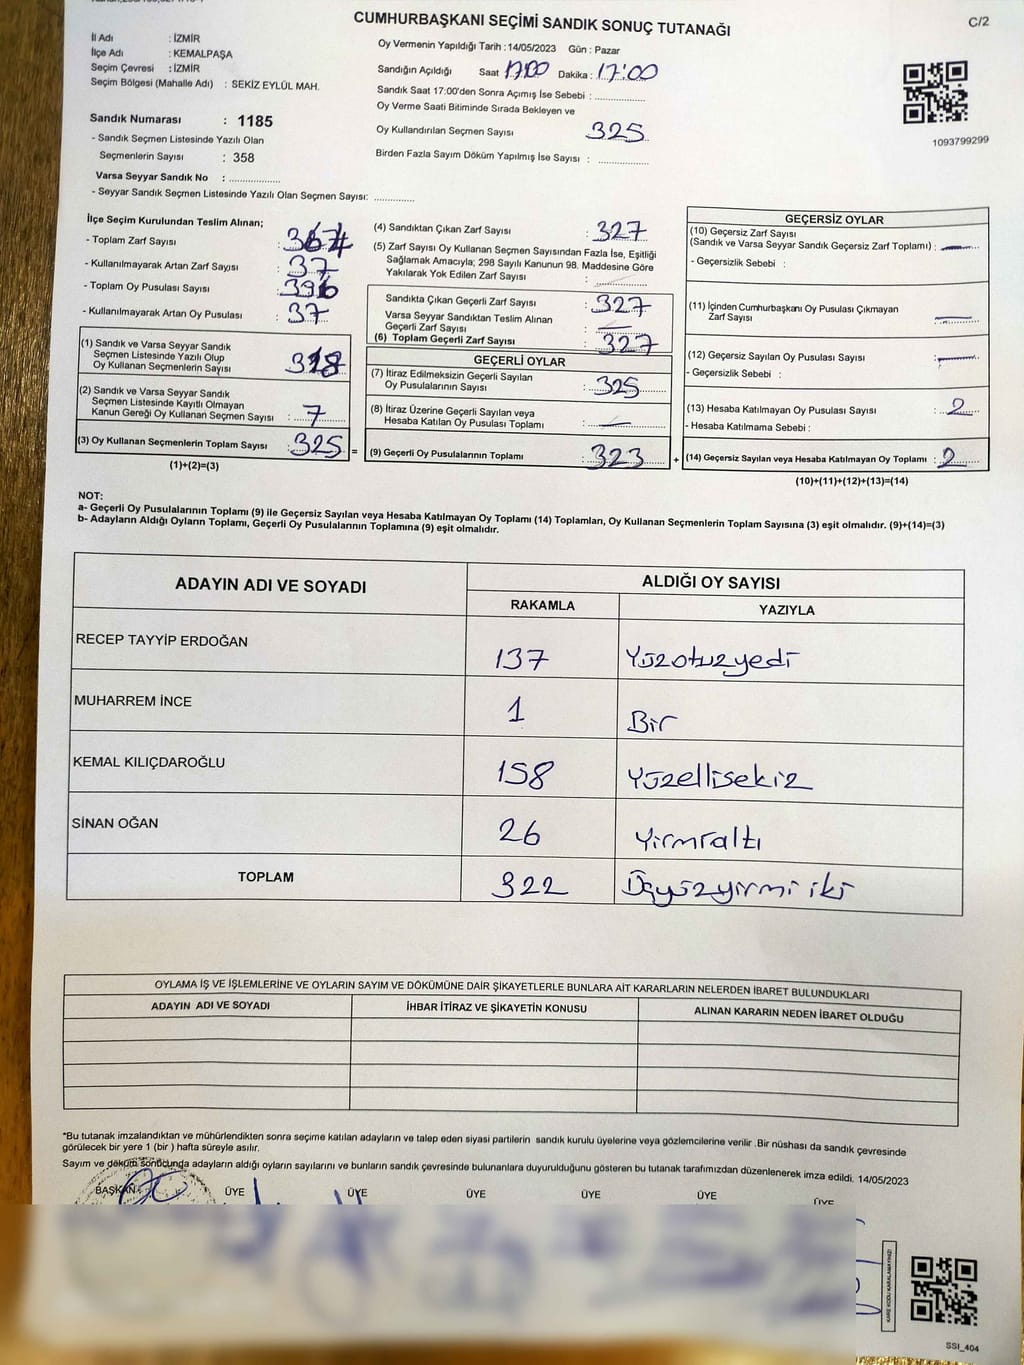 CUMHURBAŞKANI SEÇİMİ SANDIK SONUÇ TUTANAĞI
C/2
İl Adı : İZMİR
İlçe Adı : KEMALPAŞA
Seçim Çevresi : İZMİR
Seçim Bölgesi (Mahalle Adı) : SEKİZ EYLÜL MAH.
Sandık Numarası : 1185
- Sandık Seçmen Listesinde Yazılı Olan
Seçmenlerin Sayısı : 358
Varsa Seyyar Sandık No : ................
- Seyyar Sandık Seçmen Listesinde Yazılı Olan Seçmen Sayısı: .............
Oy Vermenin Yapıldığı Tarih : 14/05/2023 Gün : Pazar
Sandığın Açıldığı Saat 17:00 Dakika : 17:00
Sandık Saat 17:00'den Sonra Açımış İse Sebebi : ................
Oy Verme Saati Bitiminde Sırada Bekleyen ve
Oy Kullandırılan Seçmen Sayısı 325
Birden Fazla Sayım Döküm Yapılmış İse Sayısı : ................
1093799299
İlçe Seçim Kurulundan Teslim Alınan;
- Toplam Zarf Sayısı :
- Kullanılmayarak Artan Zarf Sayısı : 37
- Toplam Oy Pusulası Sayısı :
- Kullanılmayarak Artan Oy Pusulası : 37
(1) Sandık ve Varsa Seyyar Sandık
Seçmen Listesinde Yazılı Olup
Oy Kullanan Seçmenlerin Sayısı : 318
(2) Sandık ve Varsa Seyyar Sandık
Seçmen Listesinde Kayıtlı Olmayan
Kanun Gereği Oy Kullanan Seçmen Sayısı : 7
(3) Oy Kullanan Seçmenlerin Toplam Sayısı : 325 =
(1)+(2)=(3)
(4) Sandıktan Çıkan Zarf Sayısı : 327
(5) Zarf Sayısı Oy Kullanan Seçmen Sayısından Fazla İse, Eşitliği
Sağlamak Amacıyla; 298 Sayılı Kanunun 98. Maddesine Göre
Yakılarak Yok Edilen Zarf Sayısı :
Sandıkta Çıkan Geçerli Zarf Sayısı : 327
Varsa Seyyar Sandıktan Teslim Alınan
Geçerli Zarf Sayısı : —
(6) Toplam Geçerli Zarf Sayısı : 327
GEÇERLİ OYLAR
(7) İtiraz Edilmeksizin Geçerli Sayılan
Oy Pusulalarının Sayısı : 325
(8) İtiraz Üzerine Geçerli Sayılan veya
Hesaba Katılan Oy Pusulası Toplamı : —
(9) Geçerli Oy Pusulalarının Toplamı : 323 +
GEÇERSİZ OYLAR
(10) Geçersiz Zarf Sayısı
(Sandık ve Varsa Seyyar Sandık Geçersiz Zarf Toplamı) : —
- Geçersizlik Sebebi :
(11) İçinden Cumhurbaşkanı Oy Pusulası Çıkmayan
Zarf Sayısı : —
(12) Geçersiz Sayılan Oy Pusulası Sayısı : —
- Geçersizlik Sebebi :
(13) Hesaba Katılmayan Oy Pusulası Sayısı : 2
- Hesaba Katılmama Sebebi :
(14) Geçersiz Sayılan veya Hesaba Katılmayan Oy Toplamı : 2
(10)+(11)+(12)+(13)=(14)
NOT:
a- Geçerli Oy Pusulalarının Toplamı (9) ile Geçersiz Sayılan veya Hesaba Katılmayan Oy Toplamı (14) Toplamları, Oy Kullanan Seçmenlerin Toplam Sayısına (3) eşit olmalıdır. (9)+(14)=(3)
b- Adayların Aldığı Oyların Toplamı, Geçerli Oy Pusulalarının Toplamına (9) eşit olmalıdır.
ADAYIN ADI VE SOYADI ALDIĞI OY SAYISI
RAKAMLA YAZIYLA
RECEP TAYYİP ERDOĞAN 137 Yüzotuzyedi
MUHARREM İNCE 1 Bir
KEMAL KILIÇDAROĞLU 158 Yüzellisekiz
SİNAN OĞAN 26 Yirmialtı
TOPLAM 322 Üçyüzyirmi iki
OYLAMA İŞ VE İŞLEMLERİNE VE OYLARIN SAYIM VE DÖKÜMÜNE DAİR ŞİKAYETLERLE BUNLARA AİT KARARLARIN NELERDEN İBARET BULUNDUKLARI
ADAYIN ADI VE SOYADI İHBAR İTİRAZ VE ŞİKAYETİN KONUSU ALINAN KARARIN NEDEN İBARET OLDUĞU
*Bu tutanak imzalandıktan ve mühürlendikten sonra seçime katılan adayların ve talep eden siyasi partilerin sandık kurulu üyelerine veya gözlemcilerine verilir .Bir nüshası da sandık çevresinde
görülecek bir yere 1 (bir ) hafta süreyle asılır.
Sayım ve döküm sonucunda adayların aldığı oyların sayılarını ve bunların sandık çevresinde bulunanlara duyurulduğunu gösteren bu tutanak tarafımızdan düzenlenerek imza edildi. 14/05/2023
BAŞKAN ÜYE ÜYE ÜYE ÜYE ÜYE ÜYE
KARE KODU KARALAMAYINIZ!
SSI_404